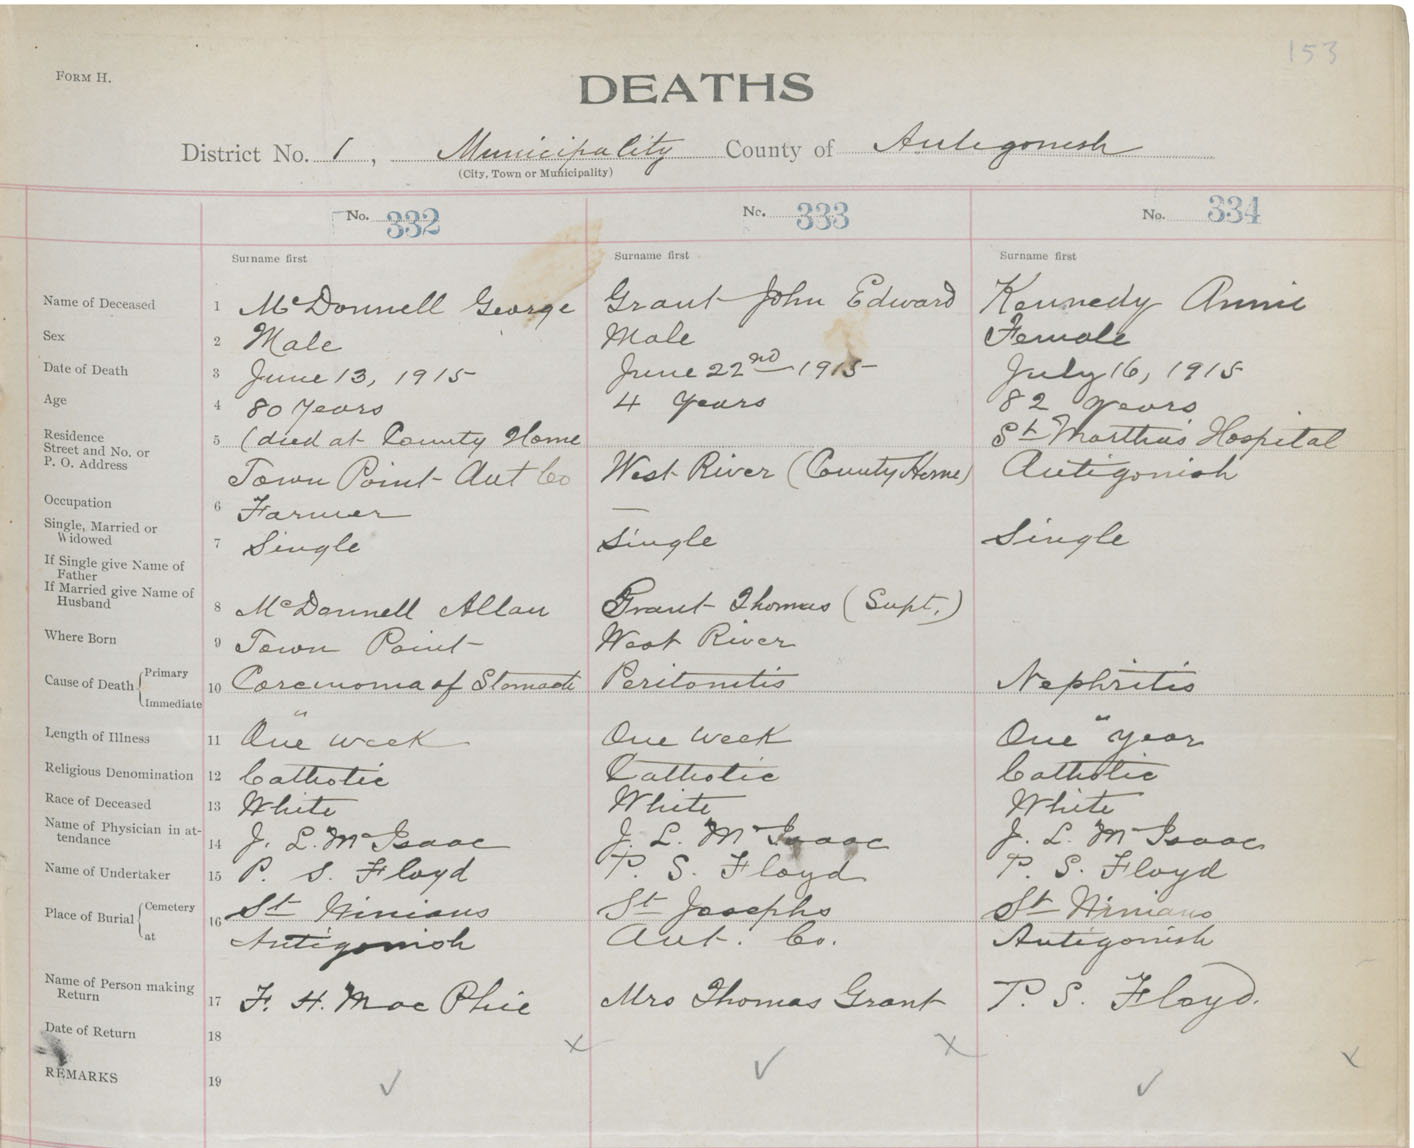 153
FORM H.
DEATHS
District No. 1, Municipality County of Antigonish
(City, Town or Municipality)
No. 332 No. 333 No. 334
Surname first Surname first Surname first
Name of Deceased 1 McDonnell George Grant John Edward Kennedy Annie
Sex 2 Male Male Female
Date of Death 3 June 13, 1915 June 22nd 1915 July 16, 1915
Age 4 80 Years 4 Years 82 Years
Residence Street and No. or P. O. Address 5 (died at County Home St Martha's Hospital
Town Point Ant Co West River (County Home) Antigonish
Occupation 6 Farmer —
Single, Married or Widowed 7 Single Single Single
If Single give Name of Father
If Married give Name of Husband 8 McDonnell Allan Grant Thomas (Supt.)
Where Born 9 Town Point West River
Cause of Death { Primary Immediate 10 Carcinoma of Stomach Peritonitis Nephritis
" "
Length of Illness 11 One week One week One year
Religious Denomination 12 Catholic Catholic Catholic
Race of Deceased 13 White White White
Name of Physician in attendance 14 J. L. McIsaac J. L. McIsaac J. L. McIsaac
Name of Undertaker 15 P. S. Floyd P. S. Floyd P. S. Floyd
Place of Burial { Cemetery 16 St Ninians St Josephs St Ninians
at Antigonish Ant. Co. Antigonish
Name of Person making Return 17 F. H. MacPhie Mrs Thomas Grant P. S. Floyd.
Date of Return 18
REMARKS 19